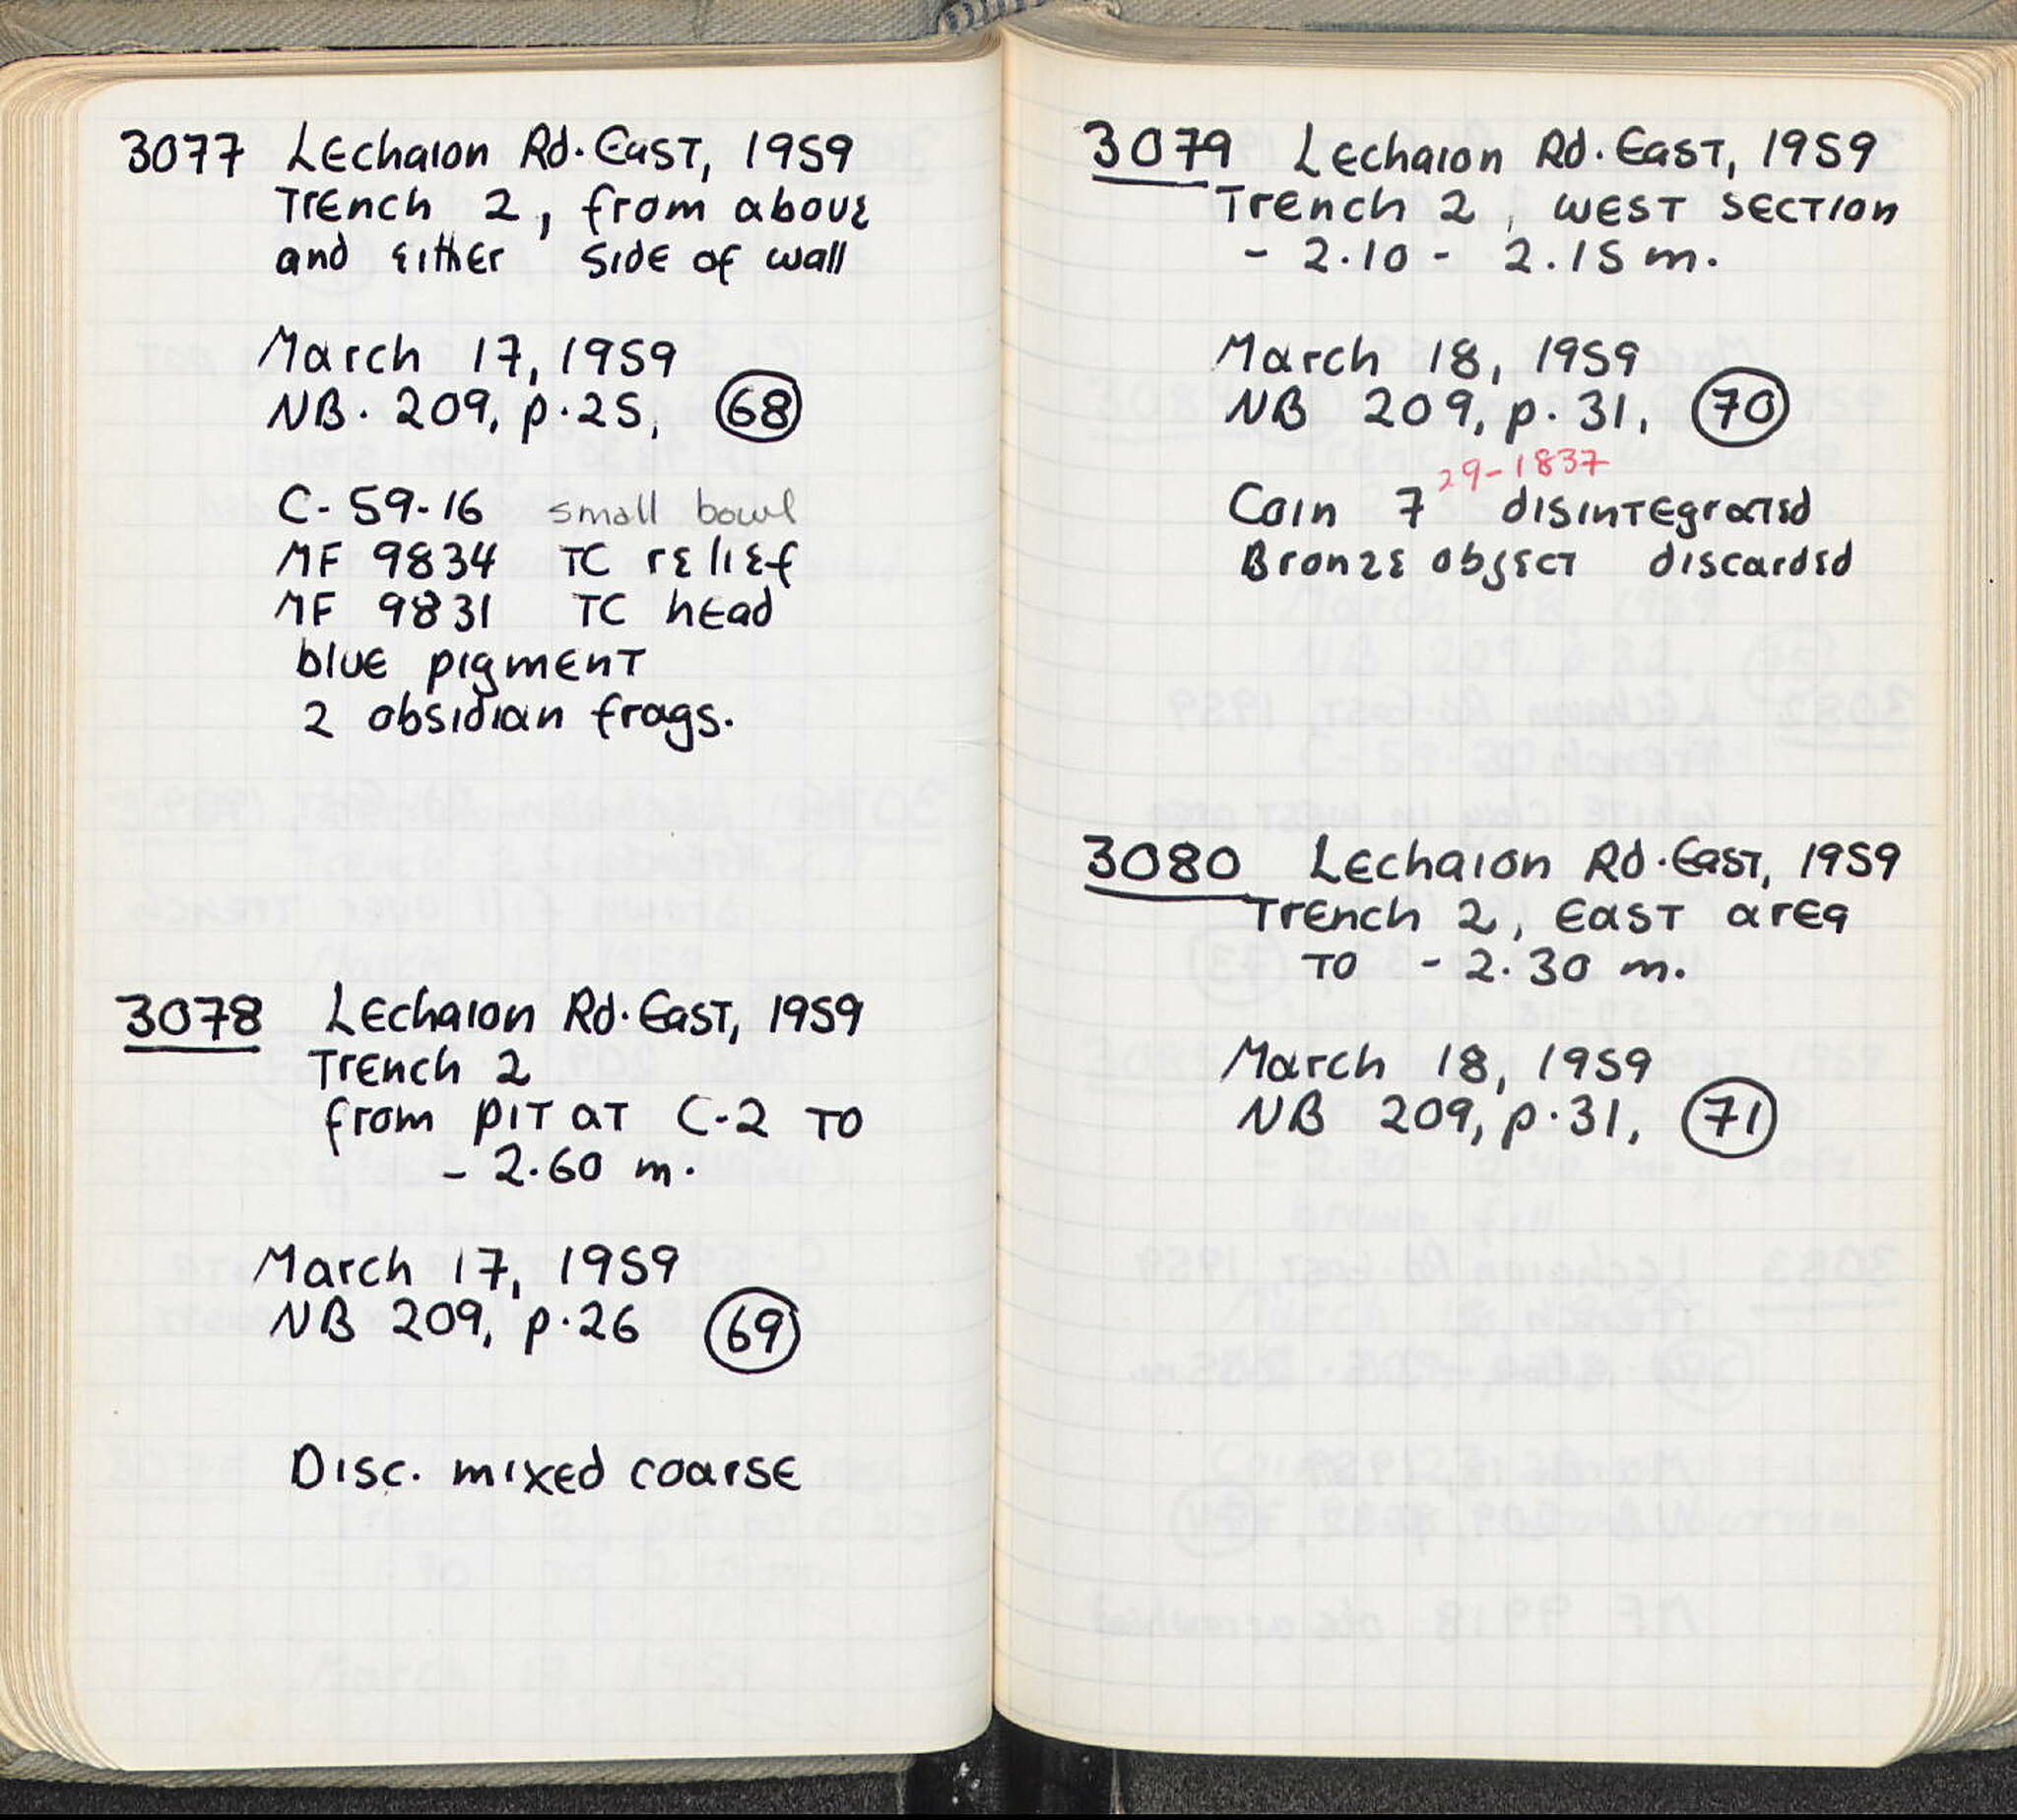 3077 Lechaion Rd. East, 1959
Trench 2, from above
and either side of wall
March 17, 1959
NB. 209, p. 25, 68
C-59-16 small bowl
MF 9834 TC relief
MF 9831 TC head
blue pigment
2 obsidian frags.
3078 Lechaion Rd. East, 1959
Trench 2
from pit at C-2 to
- 2.60 m.
March 17, 1959
NB 209, p. 26 69
Disc. mixed coarse
3079 Lechaion Rd. East, 1959
Trench 2, west section
- 2.10 - 2.15 m.
March 18, 1959
NB 209, p. 31, 70
29-1837
Coin 7 disintegrated
Bronze object discarded
3080 Lechaion Rd. East, 1959
Trench 2, East area
to - 2.30 m.
March 18, 1959
NB 209, p. 31, 71